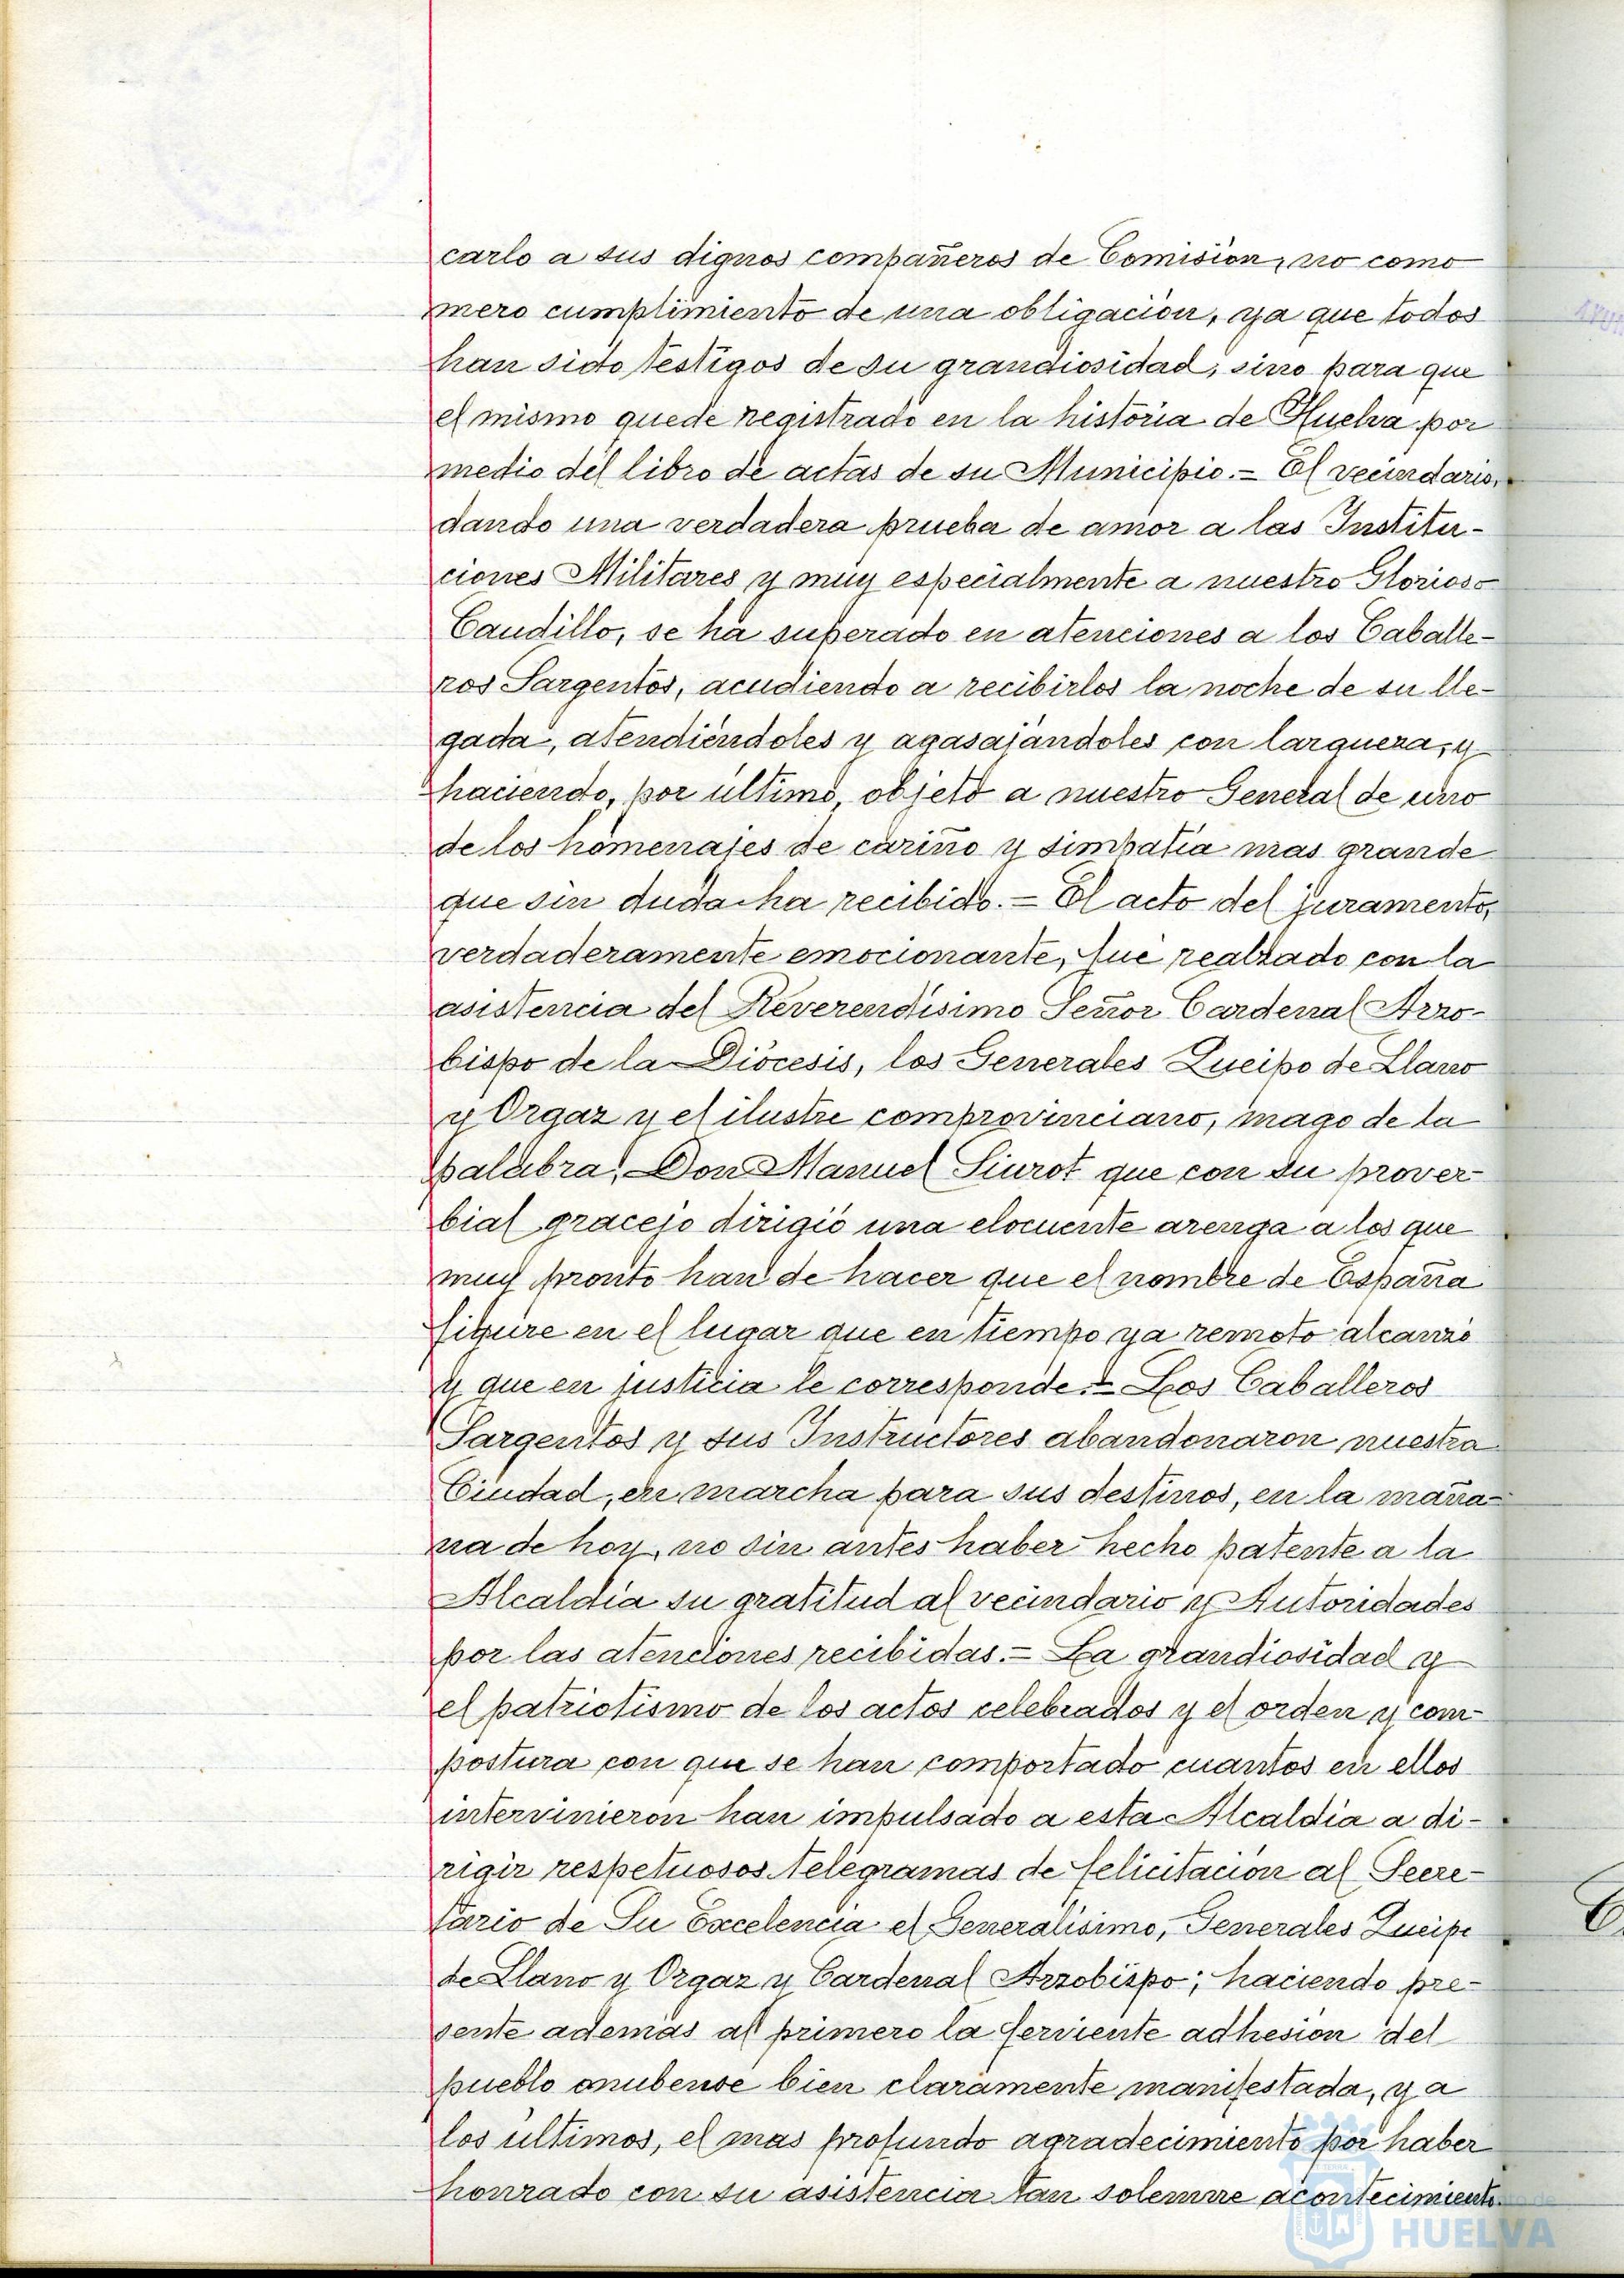 carlo a sus dignos compañeros de Comisión, no como
mero cumplimiento de una obligación, ya que todos
han sido testigos de su grandiosidad, sino para que
el mismo quede registrado en la historia de Huelva por
medio del libro de actas de su Municipio.= El vecindario,
dando una verdadera prueba de amor a las Institu-
ciones Militares y muy especialmente a nuestro Glorioso
Caudillo, se ha superado en atenciones a los Caballe-
ros Sargentos, acudiendo a recibirlos la noche de su lle-
gada, atendiéndoles y agasajándoles con larguera, y
haciendo, por último, objeto a nuestro General de uno
de los homenajes de cariño y simpatía mas grande
que sin duda ha recibido.= El acto del juramento,
verdaderamente emocionante, fué realzado con la
asistencia del Reverendísimo Señor Cardenal Arzo-
bispo de la Diócesis, los Generales Queipo de Llano
y Orgaz y el ilustre comprovinciano, mago de la
palabra, Don Manuel Siurot que con su prover-
bial gracejo dirigió una elocuente arenga a los que
muy pronto han de hacer que el nombre de España
figure en el lugar que en tiempo ya remoto alcanzó
y que en justicia le corresponde.= Los Caballeros
Sargentos y sus Instructores abandonaron nuestra
Ciudad, en marcha para sus destinos, en la maña-
na de hoy, no sin antes haber hecho patente a la
Alcaldía su gratitud al vecindario y Autoridades
por las atenciones recibidas.= La grandiosidad y
el patriotismo de los actos celebrados y el orden y com-
postura con que se han comportado cuantos en ellos
intervinieron han impulsado a esta Alcaldía a di-
rigir respetuosos telegramas de felicitación al Secre-
tario de Su Excelencia el Generalísimo, Generales Queipo
de Llano y Orgaz y Cardenal Arzobispo; haciendo pre-
sente además al primero la ferviente adhesión del
pueblo onubense bien claramente manifestada, y a
los últimos, el mas profundo agradecimiento por haber
honrado con su asistencia tan solemne acontecimiento.
HUELVA